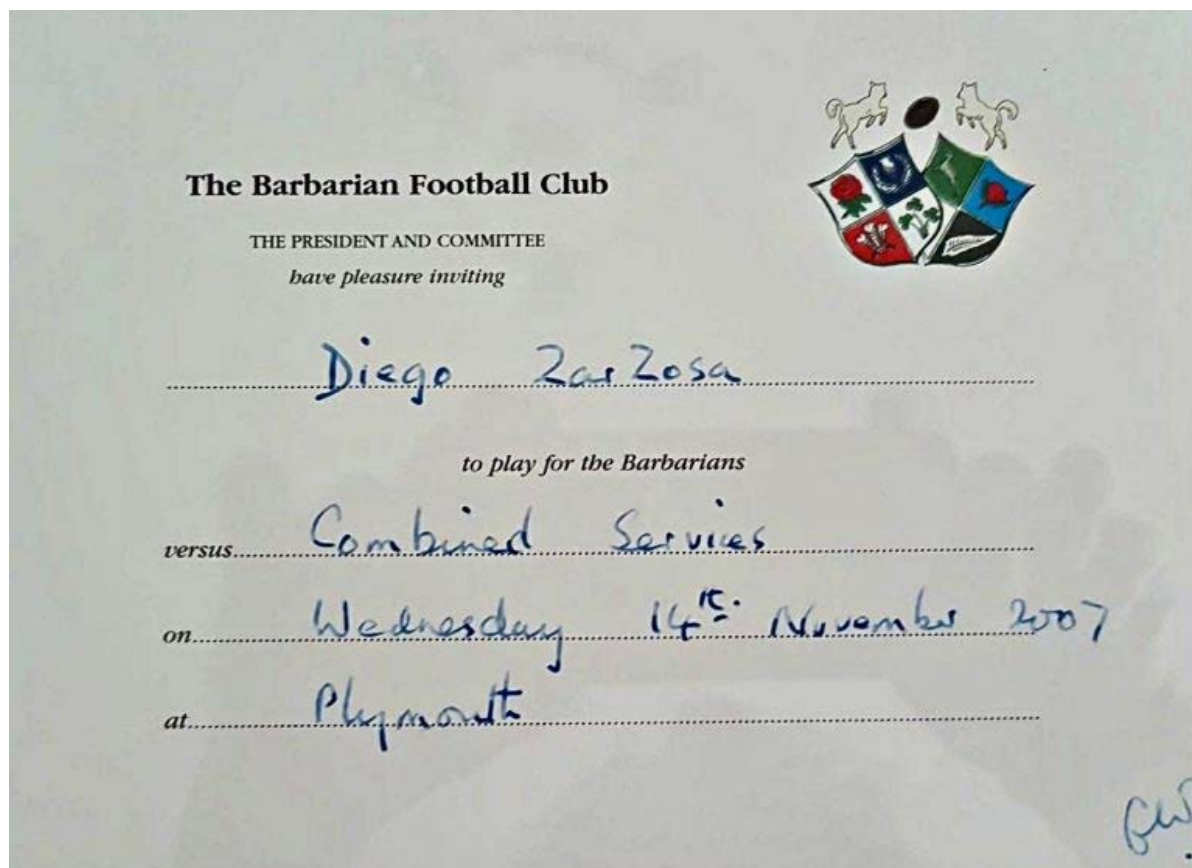 The Barbarian Football Club
THE PRESIDENT AND COMMITTEE
have pleasure inviting
Diego ZarZosa
to play for the Barbarians
versus Combined Services
on Wednesday 14th. November 2007
at Plymouth